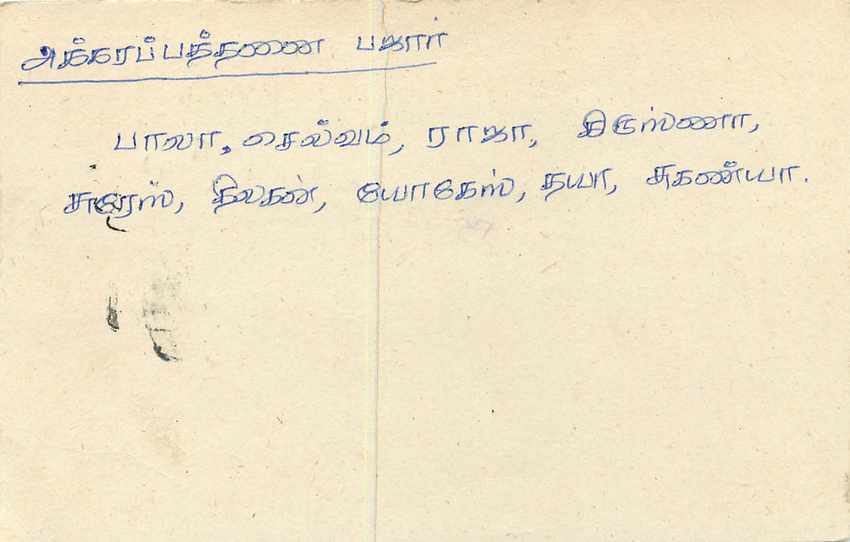 அக்கரப்பத்தனை பஜார்
பாலா, செல்வம், ராஜா, கிருஸ்ணா,
சுரேஸ், திலகன், யோகேஸ், தயா, சுகன்யா.